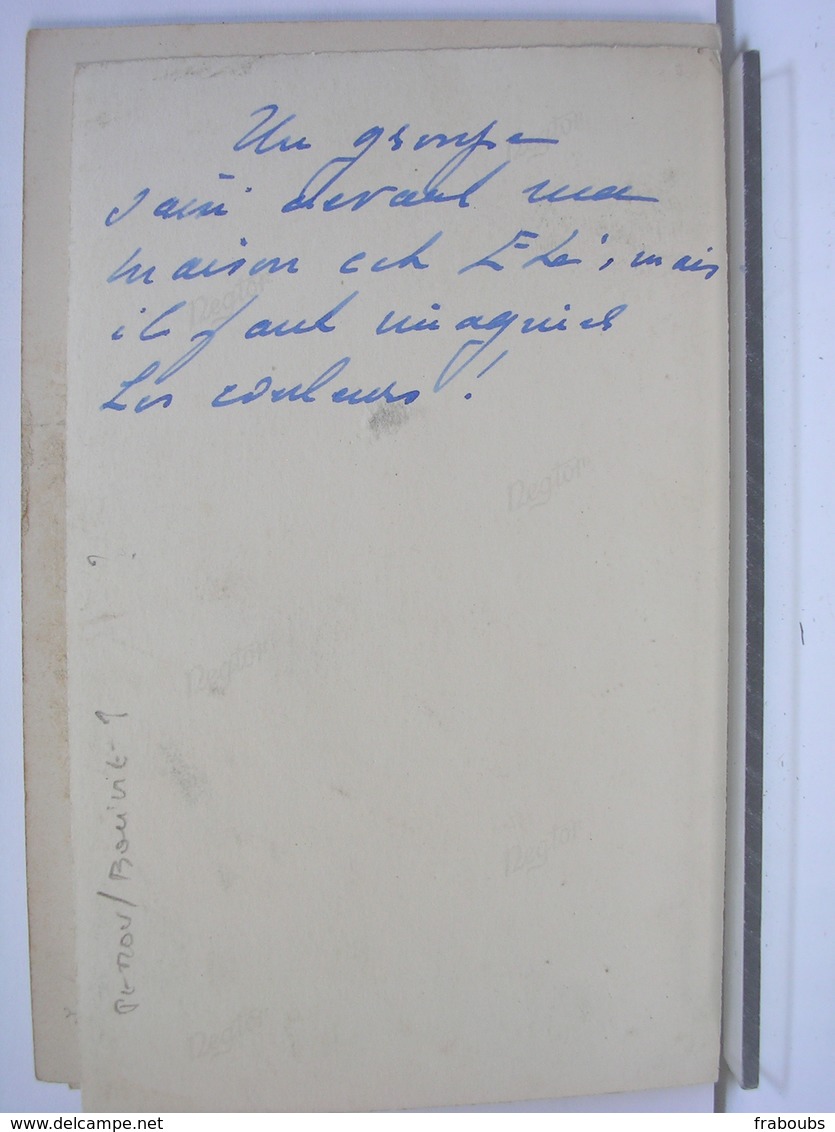 Un groupe
saisi devant ma
maison cet Eté, mais
il faut imaginer
les couleurs !
Negtor
Negtor
Negtor
Negtor
Negtor
Negtor
?
www.delcampe.net
fraboubs